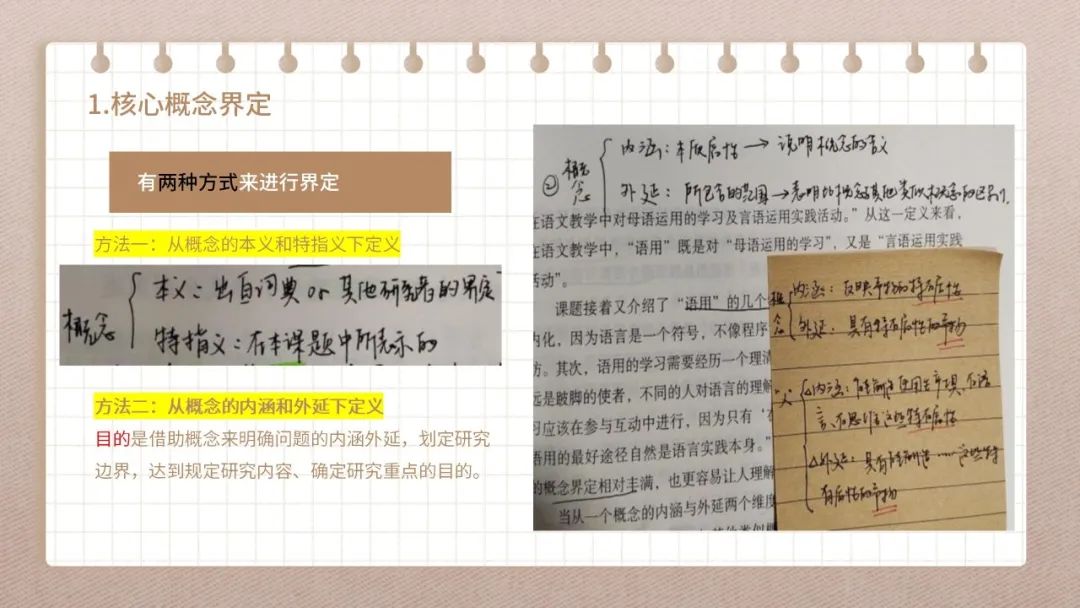 1.核心概念界定
有两种方式来进行界定
方法一：从概念的本义和特指义下定义
概念
本义：出自词典 or 其他研究者的界定
特指义：在本课题中所表示的
方法二：从概念的内涵和外延下定义
目的是借助概念来明确问题的内涵外延，划定研究
边界，达到规定研究内容、确定研究重点的目的。
② 概念
内涵：本质属性 → 说明概念的含义
外延：所包含的范围 → 表明此概念与其他类似概念的区别
在语文教学中对母语运用的学习及言语运用实践活动。”从这一定义来看，
在语文教学中，“语用”既是对“母语运用的学习”，又是“言语运用实践
活动”。
课题接着又介绍了“语用”的几个
内化，因为语言是一个符号，不像程序
方。其次，语用的学习需要经历一个理清
远是跛脚的使者，不同的人对语言的理解
习应该在参与互动中进行，因为只有“在
语用的最好途径自然是语言实践本身。”
的概念界定相对丰满，也更容易让人理解
当从一个概念的内涵与外延两个维度
概念
内涵：反映事物的特有属性
外延：具有特有属性的事物
“人”
内涵：能制造使用生产工具、有语
言、有思维这些特有属性
外延：具有能制造……这些特
有属性的事物